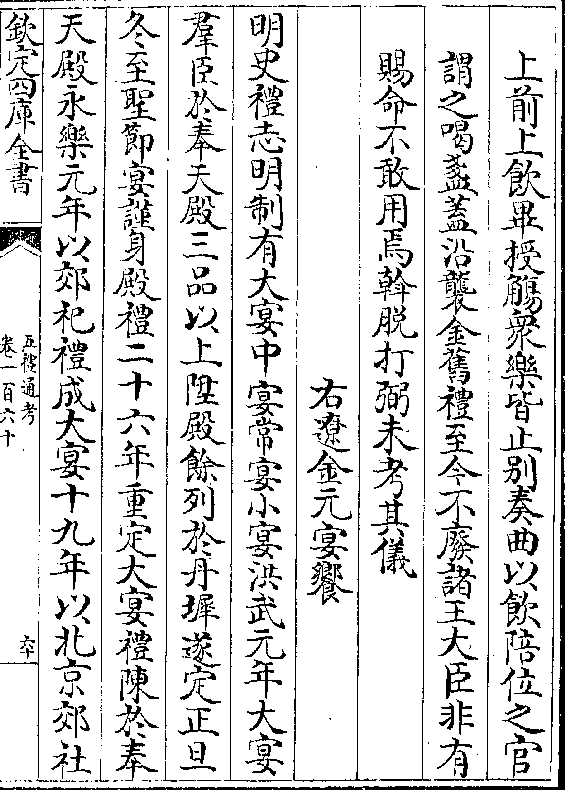 上前上飲畢授觴衆樂皆止别奏曲以飲陪位之官
謂之喝盞蓋沿襲金舊禮至今不廢諸王大臣非有
賜命不敢用焉斡脱打弼未考其儀
右遼金元宴饗
明史禮志明制有大宴中宴常宴小宴洪武元年大宴
羣臣於奉天殿三品以上陞殿餘列於丹墀遂定正旦
冬至聖節宴謹身殿禮二十六年重定大宴禮陳於奉
天殿永樂元年以郊祀禮成大宴十九年以北京郊社
欽定四庫全書
五禮通考
卷一百六十
六十